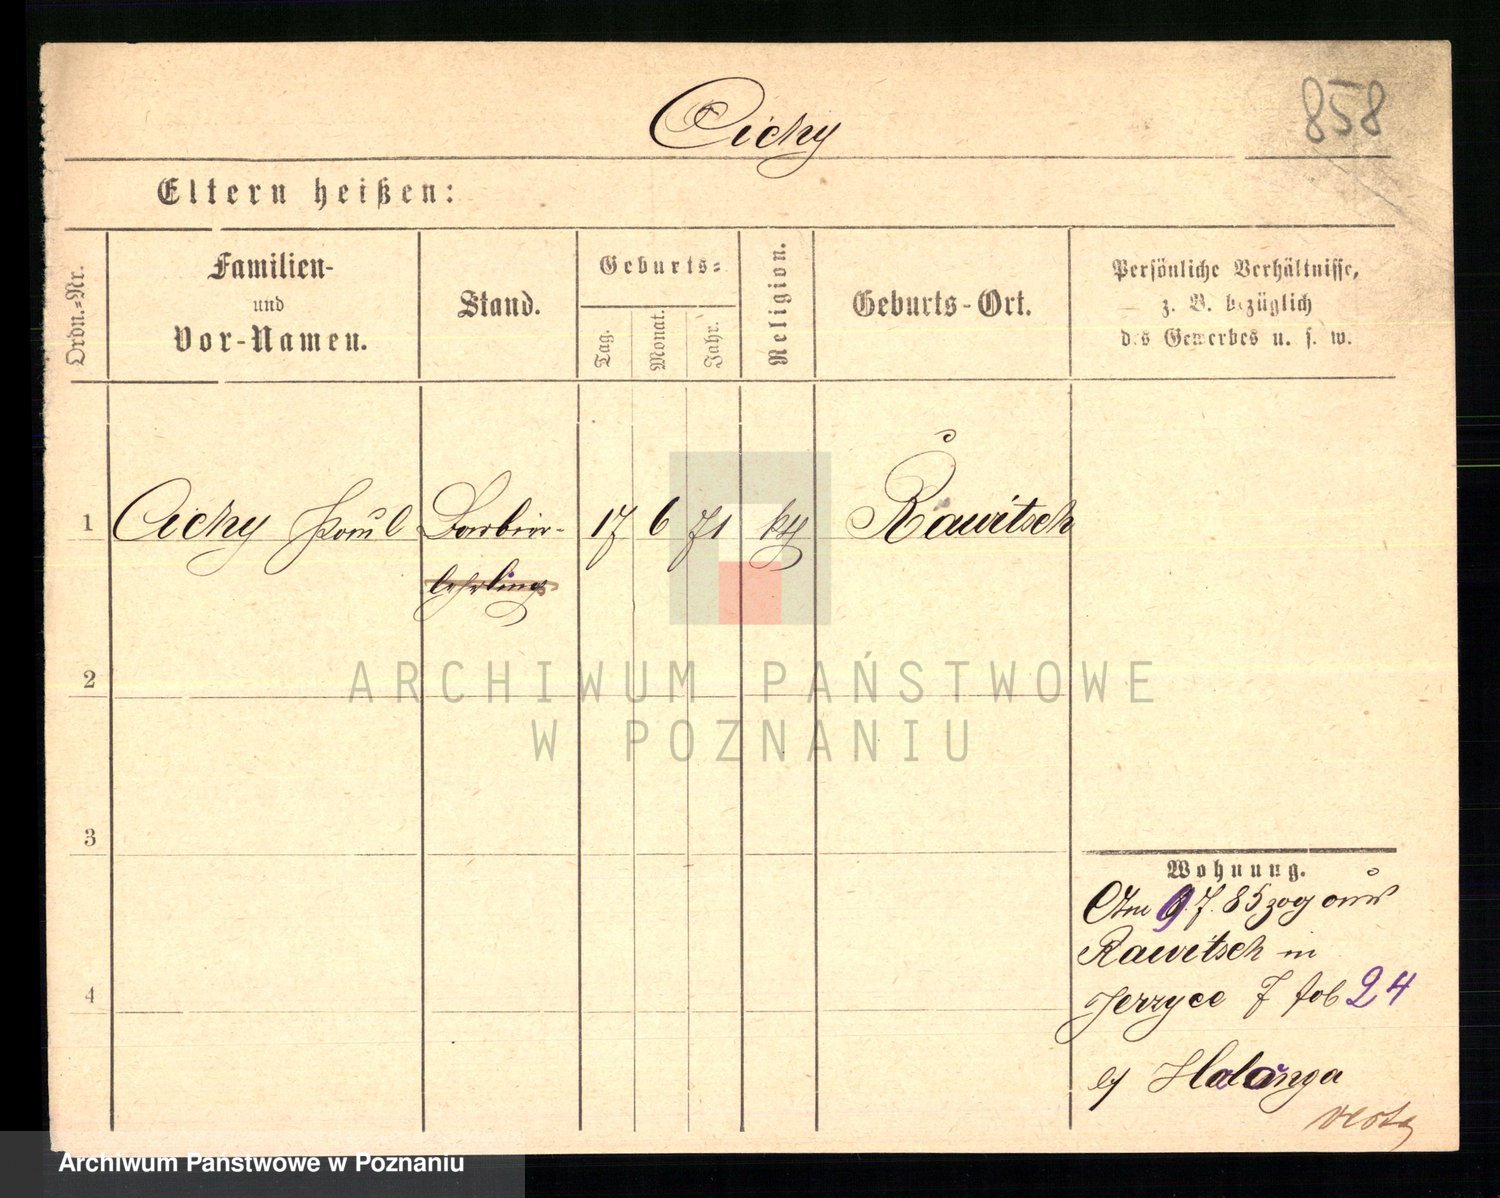 Cichy
858
Eltern heißen:
Ordn.-Nr.
Familien-
und
Vor-Namen.
Stand.
Geburts-
Tag.
Monat.
Jahr.
Religion.
Geburts-Ort.
Persönliche Verhältnisse,
z. B. bezüglich
des Gewerbes u. s. w.
1 Cichy Paul Barbier- 17 6 71 Rawitsch
lehrling
2
ARCHIWUM PAŃSTWOWE
W POZNANIU
3
Wohnung.
Am 9.7.85 zog aus
Rawitsch in
4
Jerzyce 24
Archiwum Państwowe w Poznaniu